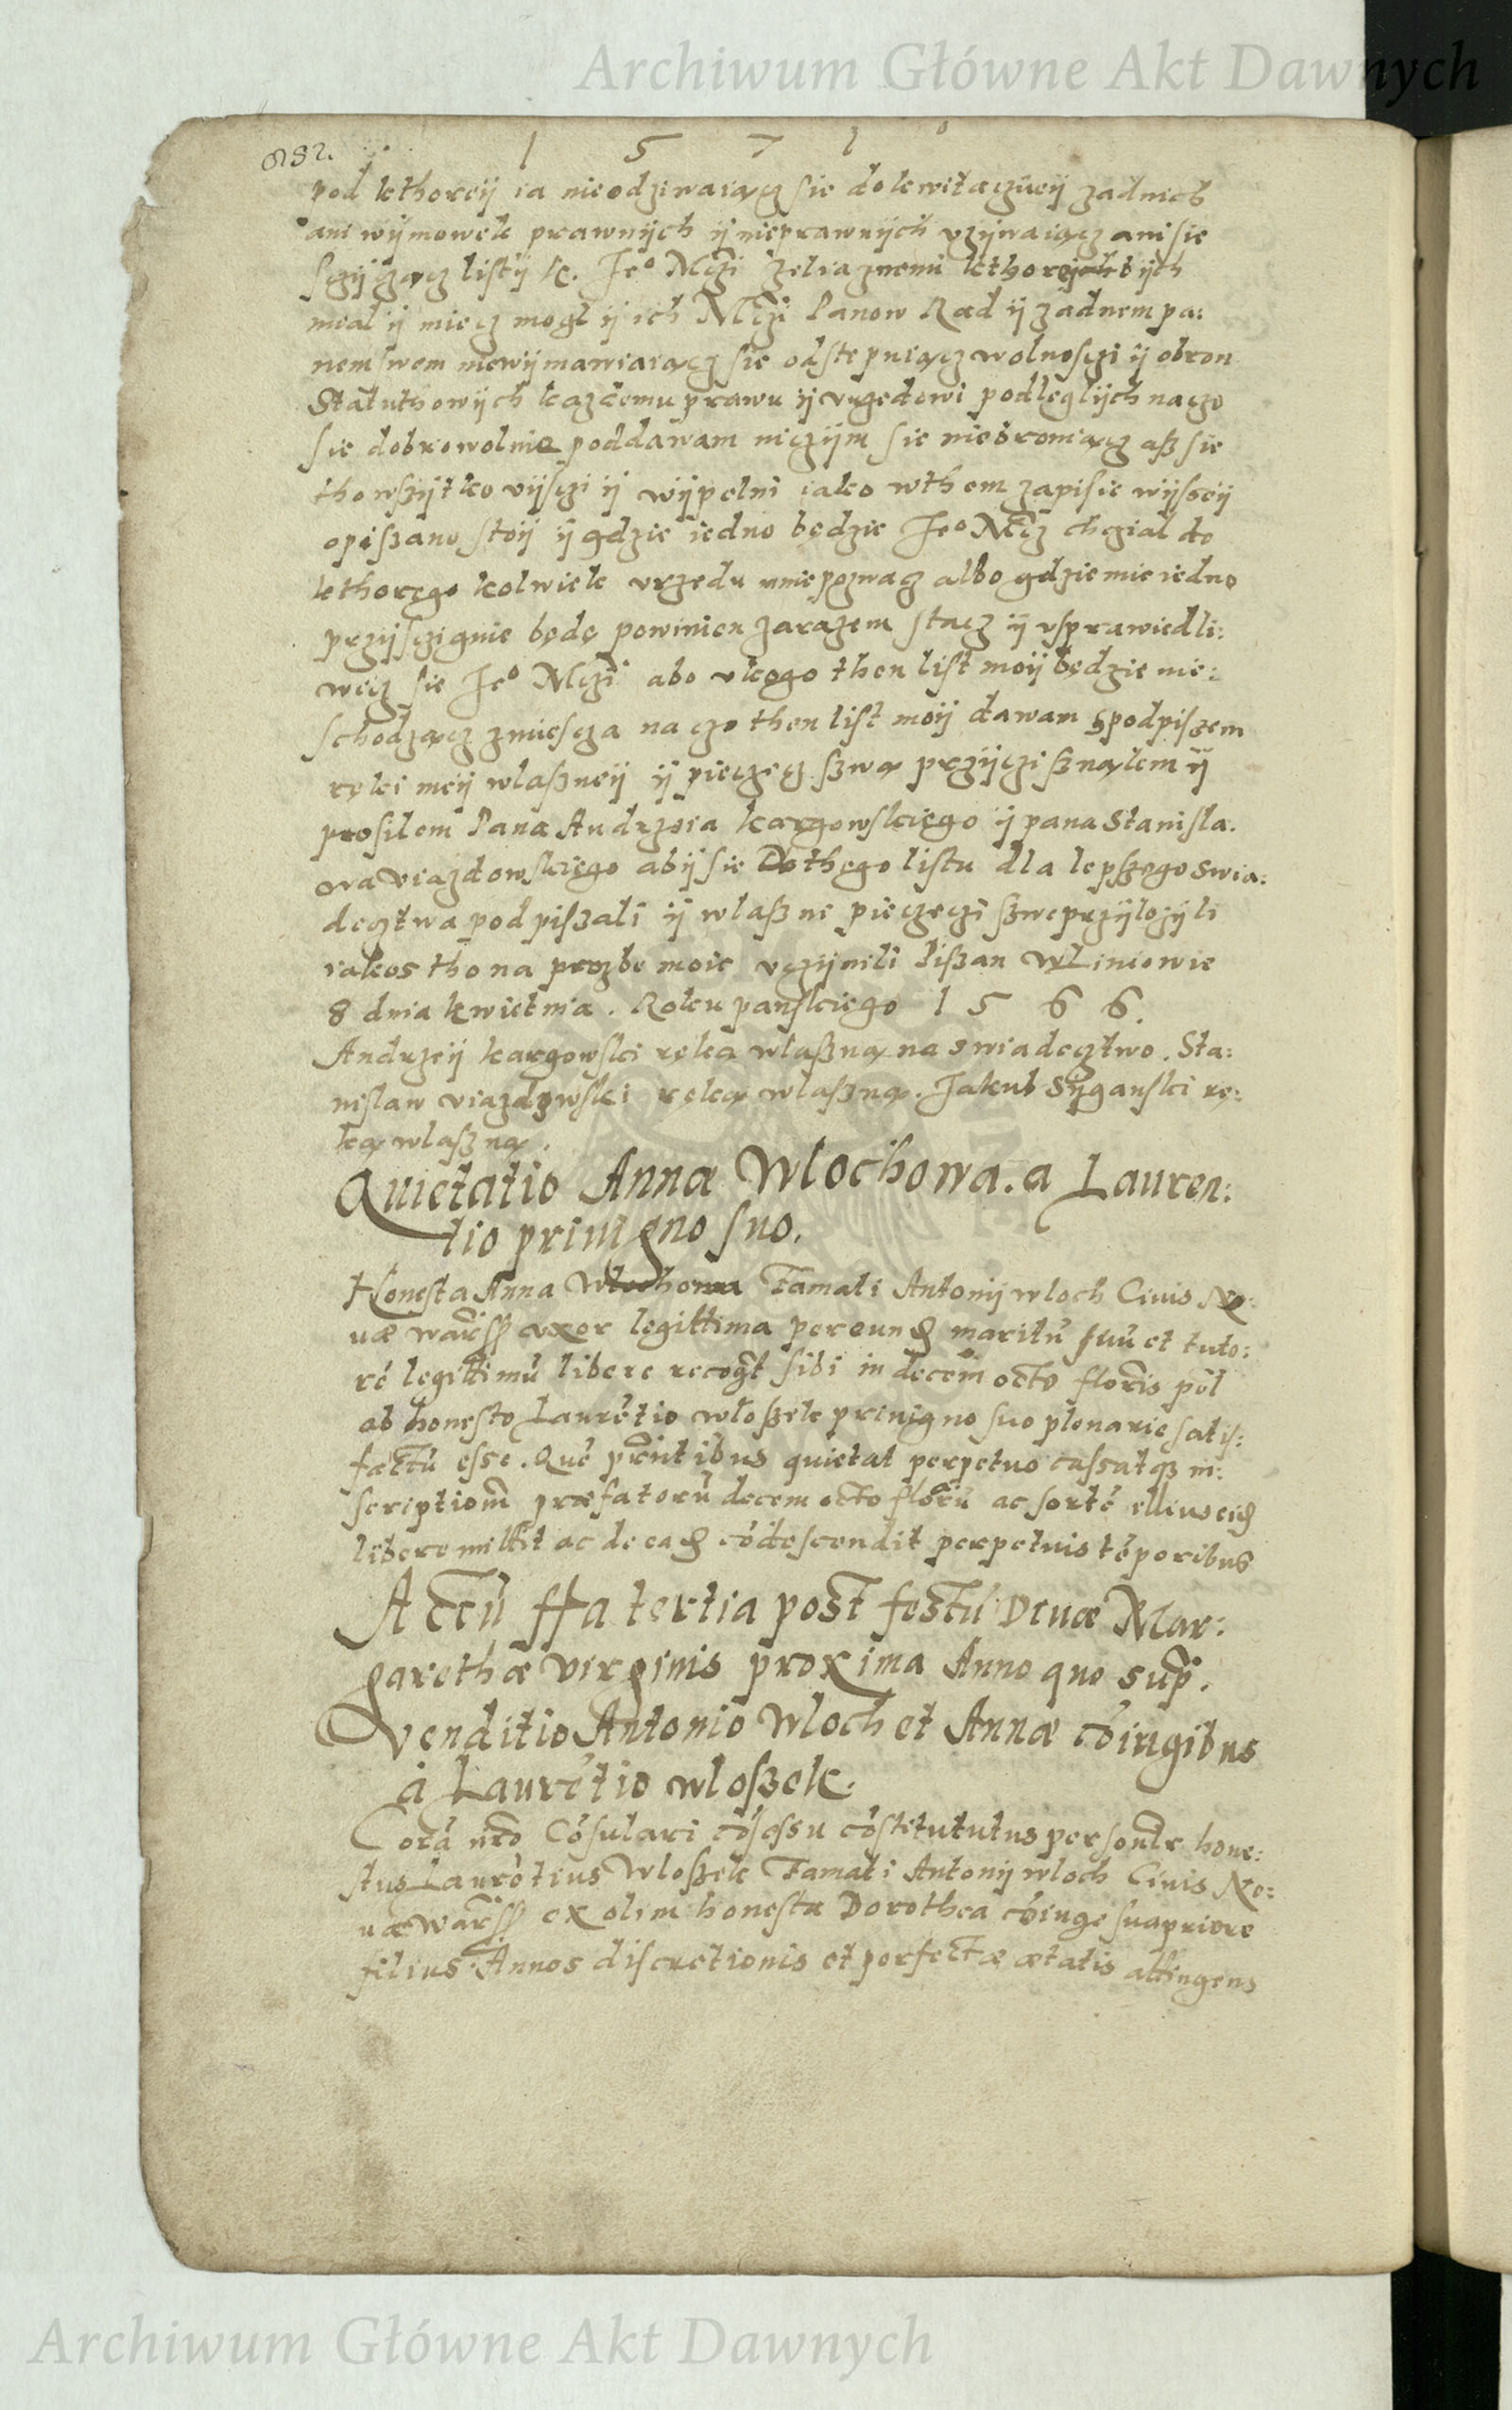 Archiwum Główne Akt Dawnych
1 5 7 1
pod kthoreÿ ia nieodziwaiącz sie dokwitaczieÿ zadnich
ani wÿmowek prawnÿch ÿ nieprawnÿch vzÿwaiącz ani sie
listÿ K. Jeº Mczi zeliaznemi
mial ÿ miecz mogł ÿ ich Mczi Panow Rad ÿ zadnem pa:
nem swem niewÿmawiaiącz sie odstepuiącz wolnosczi ÿ obron
Statuthowÿch kazdemu prawu ÿ vrzedowi podleglÿch na czo
sie dobrowolnie poddawam niczÿm sie niebroniącz aß sie
tho wszÿtko vÿsczi ÿ wÿpelni iako wthem zapisie wÿsseÿ
opiszano stoÿ ÿ gdzie iedno będzie Jeº Mcz chczial do
kthorego kolwiek vrzedu mie poznacz albo gdzie mie iedno
przÿsczignie będę powinien zarazem stacz ÿ vsprawiedli:
wicz sie Jeº Mczi abo vkogo then list moÿ będzie nie:
schodzącz zmiescza na czo then list moÿ dawam spodpiszem
ręki meÿ wlaszneÿ ÿ pieczęcz szwą przÿczisznąlem ÿ
prosilem Pana Andrzeia kargowskiego ÿ pana Stanisla.
wa viazdowskiego abÿ sie Do thego listu dla lepszego swia:
decztwa podpiszali ÿ wlaszne pieczęczi szwe przÿlozÿli
iakos tho na prozbe moie vczÿnili Piszan w Liniowie
8 dnia kwietnia. Roku panskiego 1 5 6 6.
Andrzeÿ kargowski ręką wlaszną na swiadecztwo. Sta:
nislaw viazdowski ręką wlaszną. Jakub Sÿganski rę:
ką wlaszną.
Quietatio Annæ Wlochowa. a Lauren:
tio priuigno suo.
Honesta Anna Wlochowa Famati Antonij wloch Ciuis No:
uæ warss vxor legittima per eund maritū suū et tuto:
rē legittimū libere recogt sibi in decem octo floris pol
ab honesto Laurētio wloszek priuigno suo plenarie satis:
factū esse. Quē prntibus quietat perpetuo cassatq in:
scriptionē præfatorū decem octo florū ac sortē illius eid
libere mittit ac de ead cōdescendit perpetuis tēporibus
Actū ffa tertia post festū Diuæ Mar:
garethæ virginis proxima Anno quo sup.
Venditio Antonio Wloch et Annæ cōiugibus
à Laurētio wloszek.
Corā nro Cōsulari cōsessu cōstitututus personlr hone:
stus Laurētius Wloszek Famati Antonij wloch Ciuis No:
uæ warss ex olim honesta Dorothea cōiuge sua priore
filius. Annos discretionis et perfectæ ætatis attingens
Archiwum Główne Akt Dawnych